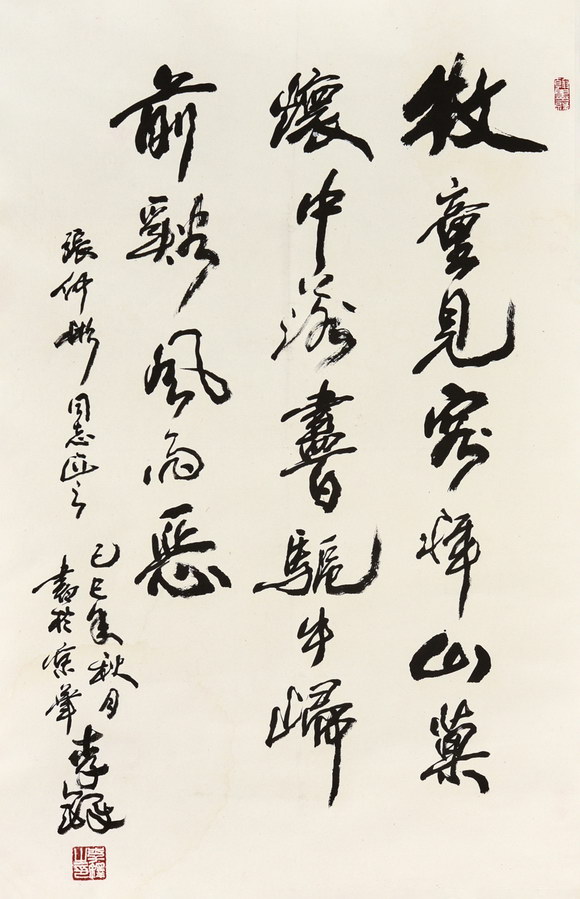 牧童見客拜山菓
懷中落晝日驅牛歸
前谿風雨惡
張仲彬同志
己巳年秋月
書於京華
李鐸